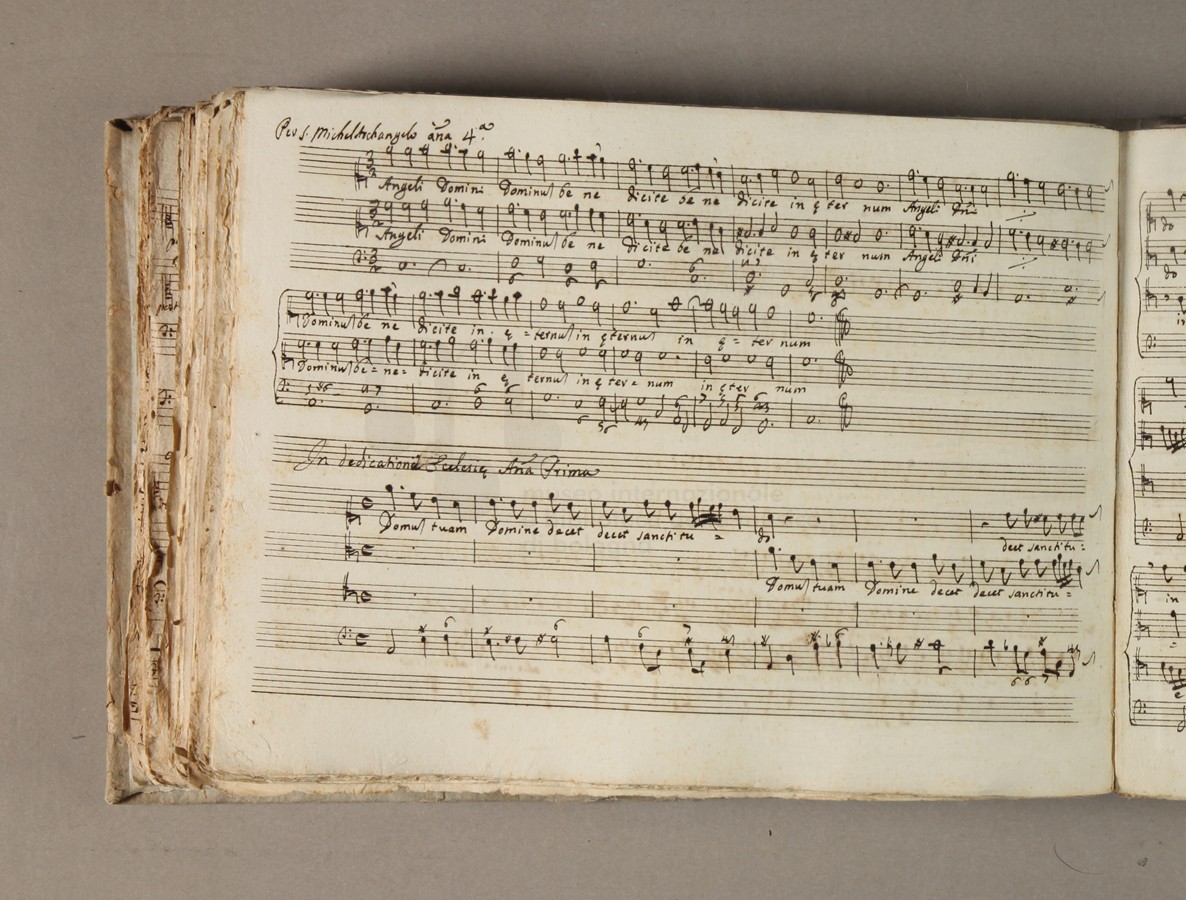 Per S. Michel Archangelo añа 4.ª
Angeli Domini Dominus be ne dicite be ne dicite in ę ter num Angeli Dñi
Angeli Domini Dominus be ne dicite be ne dicite in ę ter num Angeli Dñi
Dominus be ne dicite in ę = ternus in ęternus in ę = ter num
Dominus be = ne = dicite in ę ternus in ę ter = num in ęter num
In dedicatione Ecclesię Aña Prima
Domus tuam Domine decet decet sanctitu = do decet sanctitu =
Domus tuam Domine decet decet sanctitu =
museo internazionale